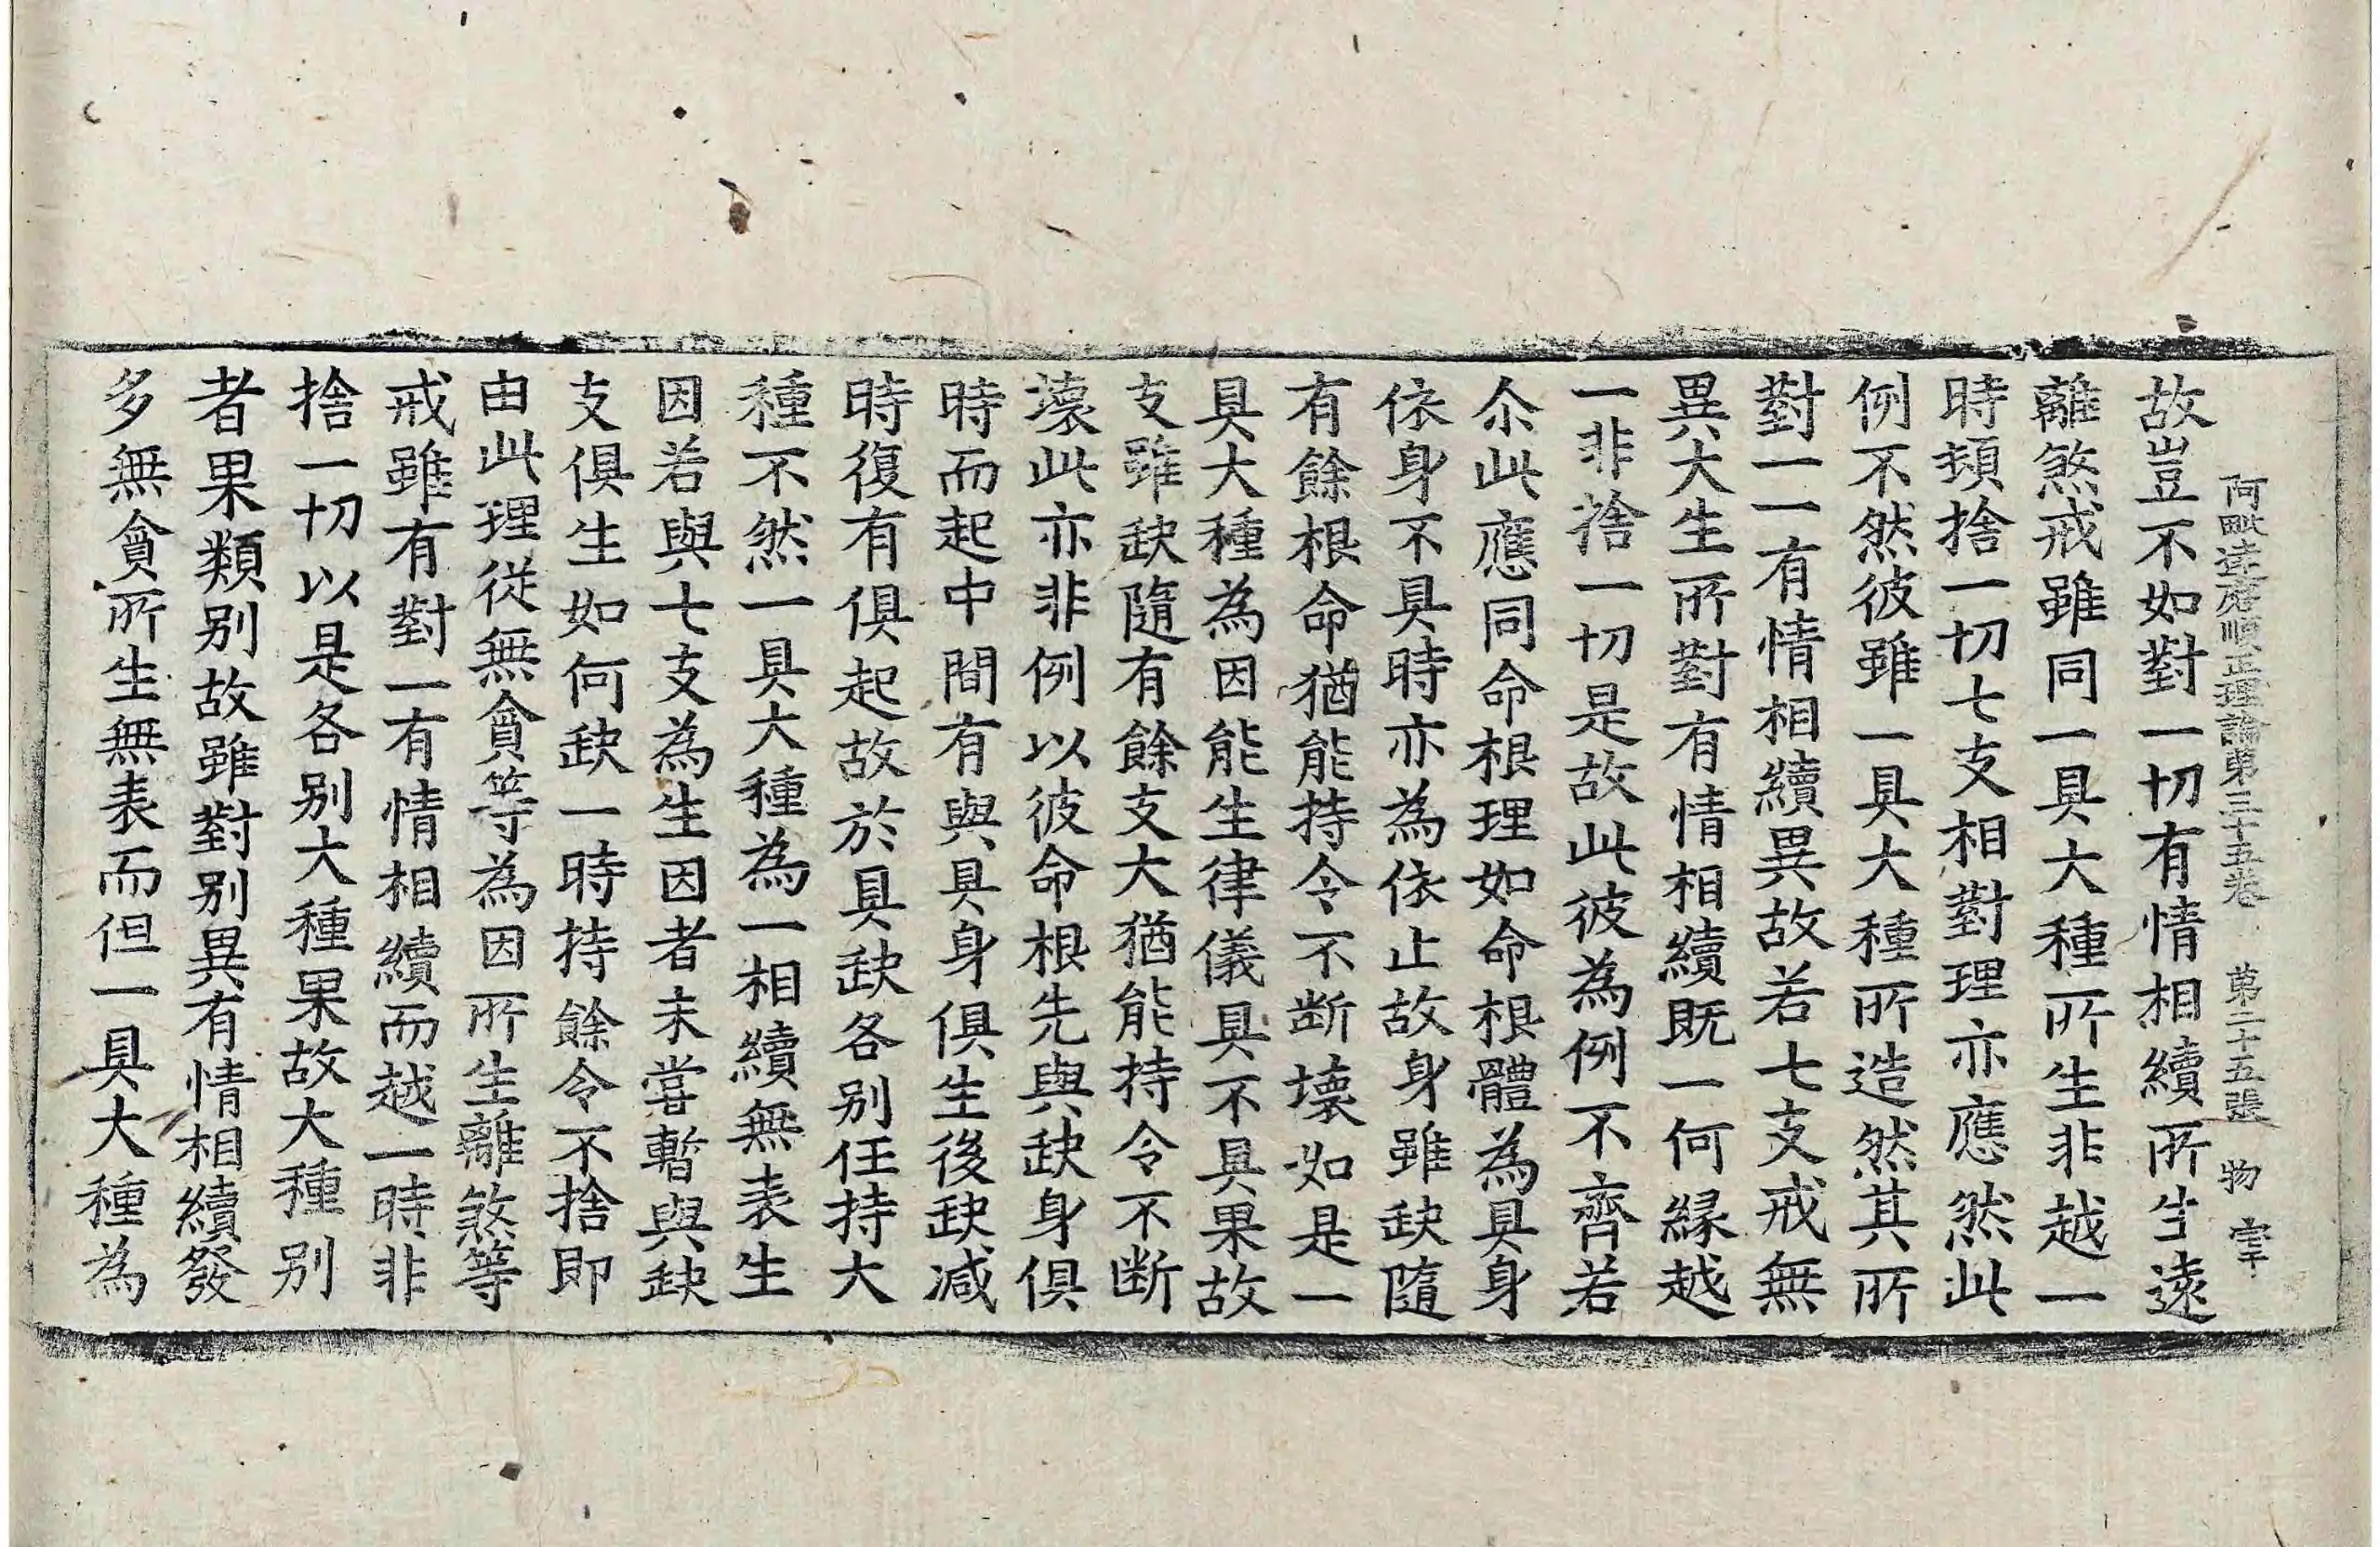 阿毗達磨順正理論第三十五卷 第二十五張 物 宰
故豈不如對一切有情相續所生遠
離煞戒雖同一具大種所生非越一
時頓捨一切七支相對理亦應然此
例不然彼雖一具大種所造然其所
對一一有情相續異故若七支戒無
異大生所對有情相續既一何緣越
一非捨一切是故此彼為例不齊若
尒此應同命根理如命根體為具身
依身不具時亦為依止故身雖缺隨
有餘根命猶能持令不断壞如是一
具大種為因能生律儀具不具果故
支雖缺隨有餘支大猶能持令不断
壞此亦非例以彼命根先與缺身俱
時而起中間有與具身俱生後缺减
時復有俱起故於具缺各別任持大
種不然一具大種為一相續無表生
因若與七支為生因者未甞暫與缺
支俱生如何缺一時持餘令不捨即
由此理從無貪等為因所生離煞等
戒雖有對一有情相續而越一時非
捨一切以是各別大種果故大種別
者果類別故雖對別異有情相續發
多無貪所生無表而但一具大種為